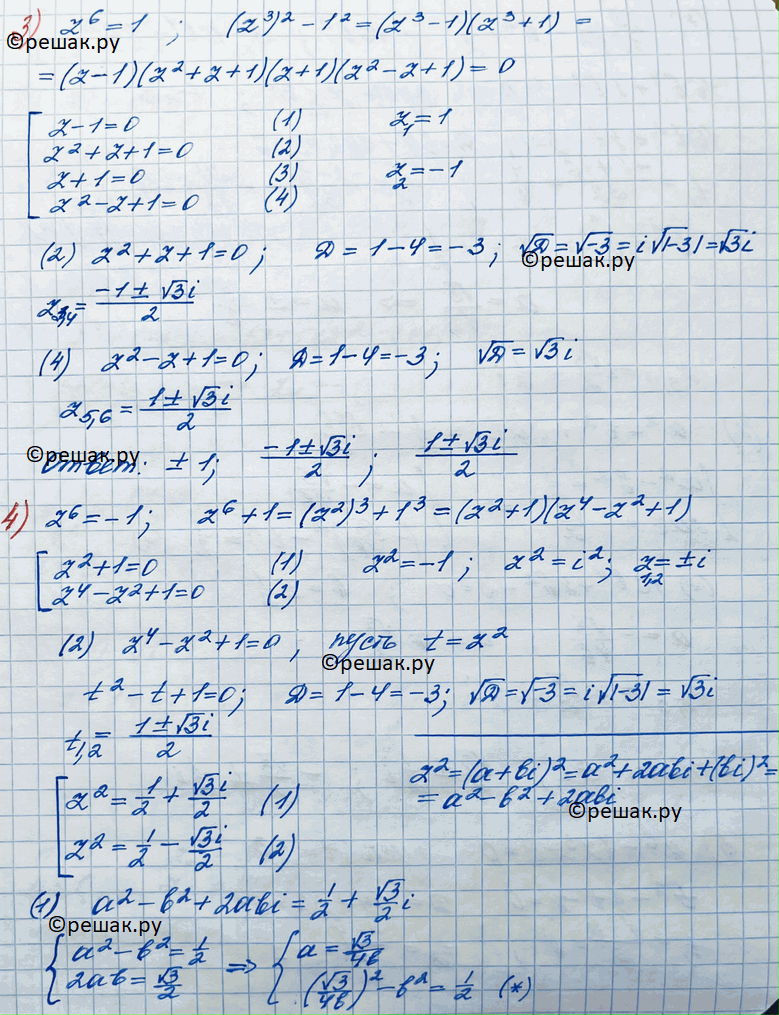 3) z⁶ = 1 ; (z³)² − 1² = (z³ − 1)(z³ + 1) =
©решак.ру
= (z − 1)(z² + z + 1)(z + 1)(z² − z + 1) = 0
[ z − 1 = 0 (1) z₁ = 1
z² + z + 1 = 0 (2)
z + 1 = 0 (3) z₂ = −1
z² − z + 1 = 0 (4)
(2) z² + z + 1 = 0 ; D = 1 − 4 = −3 ; √D = √−3 = i√|−3| = √3i
©решак.ру
z₃,₄ = (−1 ± √3i)/2
(4) z² − z + 1 = 0 ; D = 1 − 4 = −3 ; √D = √3i
z₅,₆ = (1 ± √3i)/2
©решак.ру
Ответ: ± 1 ; (−1 ± √3i)/2 ; (1 ± √3i)/2
4) z⁶ = −1 ; z⁶ + 1 = (z²)³ + 1³ = (z² + 1)(z⁴ − z² + 1)
[ z² + 1 = 0 (1) z² = −1 ; z² = i² ; z₁,₂ = ± i
z⁴ − z² + 1 = 0 (2)
(2) z⁴ − z² + 1 = 0 , пусть t = z²
©решак.ру
t² − t + 1 = 0 ; D = 1 − 4 = −3 ; √D = √−3 = i√|−3| = √3i
t₁,₂ = (1 ± √3i)/2
z² = (a + bi)² = a² + 2abi + (bi)² =
= a² − b² + 2abi
©решак.ру
[ z² = 1/2 + √3i/2 (1)
z² = 1/2 − √3i/2 (2)
(1) a² − b² + 2abi = 1/2 + √3/2 i
©решак.ру
{ a² − b² = 1/2 => { a = √3/4b
2ab = √3/2 (√3/4b)² − b² = 1/2 (*)